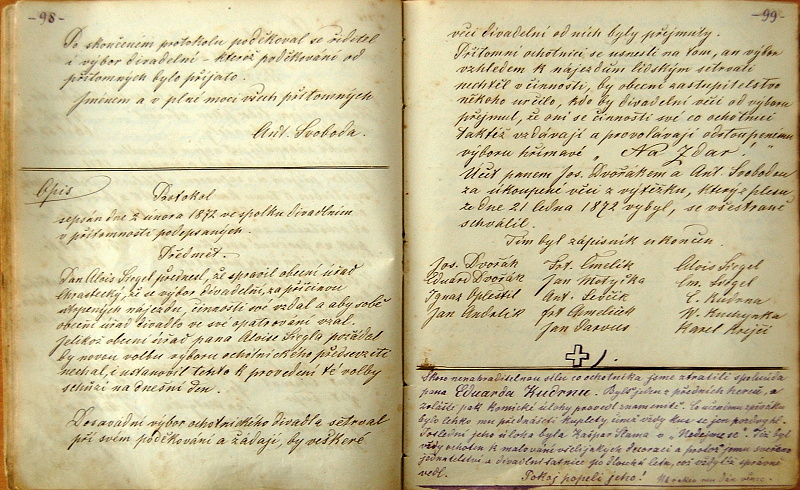 -98-
Po skončeném protokolu poděkoval se ředitel
i výbor divadelní - kteréž poděkování od
přítomných bylo přijato.
Jménem a v plné moci všech přítomných
Ant. Svoboda.
Opis
Protokol
sepsán dne 2 února 1872 ve spolku divadelním
v přítomnosti podepsaných.
Předmět.
Pan Alois Siegel přednesl, že spravil obecní úřad
chrastecký, že se výbor divadelní, za příčinou
nájezdů, činnosti své vzdal a aby sobě
obecní úřad divadlo ve své opatrování vzal.
Jelikož obecní úřad pana Aloise Siegla požádal
by novou volbu výboru ochotnického předsevzíti
nechal, i ustanovil tento k provedení té volby
schůzi na dnešní den.
Dosavádní výbor ochotnického divadla setrval
při svém poděkování a žádají, by veškeré
-99-
věci divadelní od nich byly přejmuty.
Přítomní ochotníci se usnesli na tom, an výbor
vzhledem k nájezdům lidským setrvati
nechtěl v činnosti, by obecní zastupitelstvo
někoho určilo, kdo by divadelní věci od výboru
přejmul, že oni se činnosti své co ochotníci
taktéž vzdávají a provolávají odstoupenému
výboru hřímavé „Na Zdar!"
Účet panem Jos. Dvořákem a Ant. Svobodou
za ukoupené věci z výtěžku, který z plesu
ze dne 21 ledna 1872 vybyl, se všestraně
schválil.
Tím byl zápisník ukončen.
Jos. Dvořák Frt. Cmelík Alois Siegel
Eduard Dvořák Jan Motyčka Em. Siegel
Ignaz Opleštil Ant. Ledčík E. Kudrna
Jan Andrlík W. Kuchynka
Jan Karel Krejčí
Skoro nenahraditelnou sílu co ochotníka jsme ztratili spoluúda
pana Eduarda Kudrnu. Byltě jeden z předních herců, a
zvláště pak komické úlohy provozoval znamenitě. Co výbornému zpěváku
bylo lehko mu přednášeti kuplety
Poslední jeho úloha byla Kašpar Sláma v „". Též byl
vždy ochoten k malování dekorací a
jednatelství a divadelní po dlouhá léta, vždy správně
vedl. Pokoj popeli jeho!